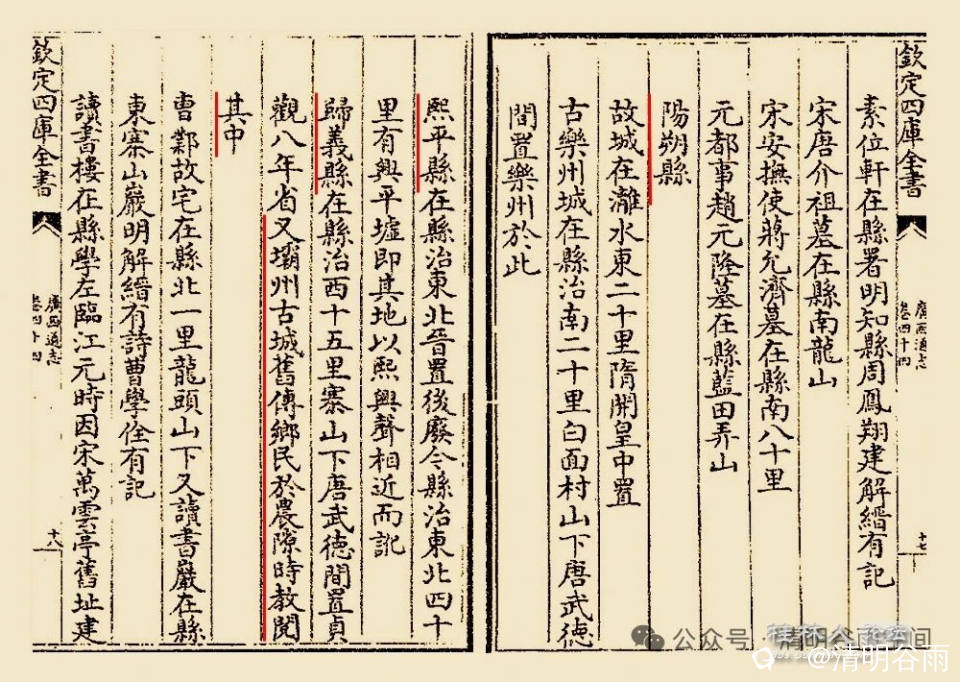 欽定四庫全書
廣西通志
卷四十四
十七
素位軒在縣署明知縣周鳳翔建解縉有記
宋唐介祖墓在縣南龍山
宋安撫使蔣允濟墓在縣南八十里
元都事趙元隆墓在縣藍田弄山
陽朔縣
故城在灕水東二十里隋開皇中置
古樂州城在縣治南二十里白面村山下唐武德
間置樂州於此
熙平縣在縣治東北晉置後廢今縣治東北四十
里有興平墟即其地以熙興聲相近而訛
歸義縣在縣治西十五里寨山下唐武德間置貞
觀八年省又壩州古城舊傳鄉民於農隙時教閱
其中
曹鄴故宅在縣北一里龍頭山下又讀書巖在縣
東寨山巖明解縉有詩曹學佺有記
讀書樓在縣學左臨江元時因宋萬雲亭舊址建
欽定四庫全書
廣西通志
卷四十四
十八
公众号 清明谷雨 空间
@清明谷雨